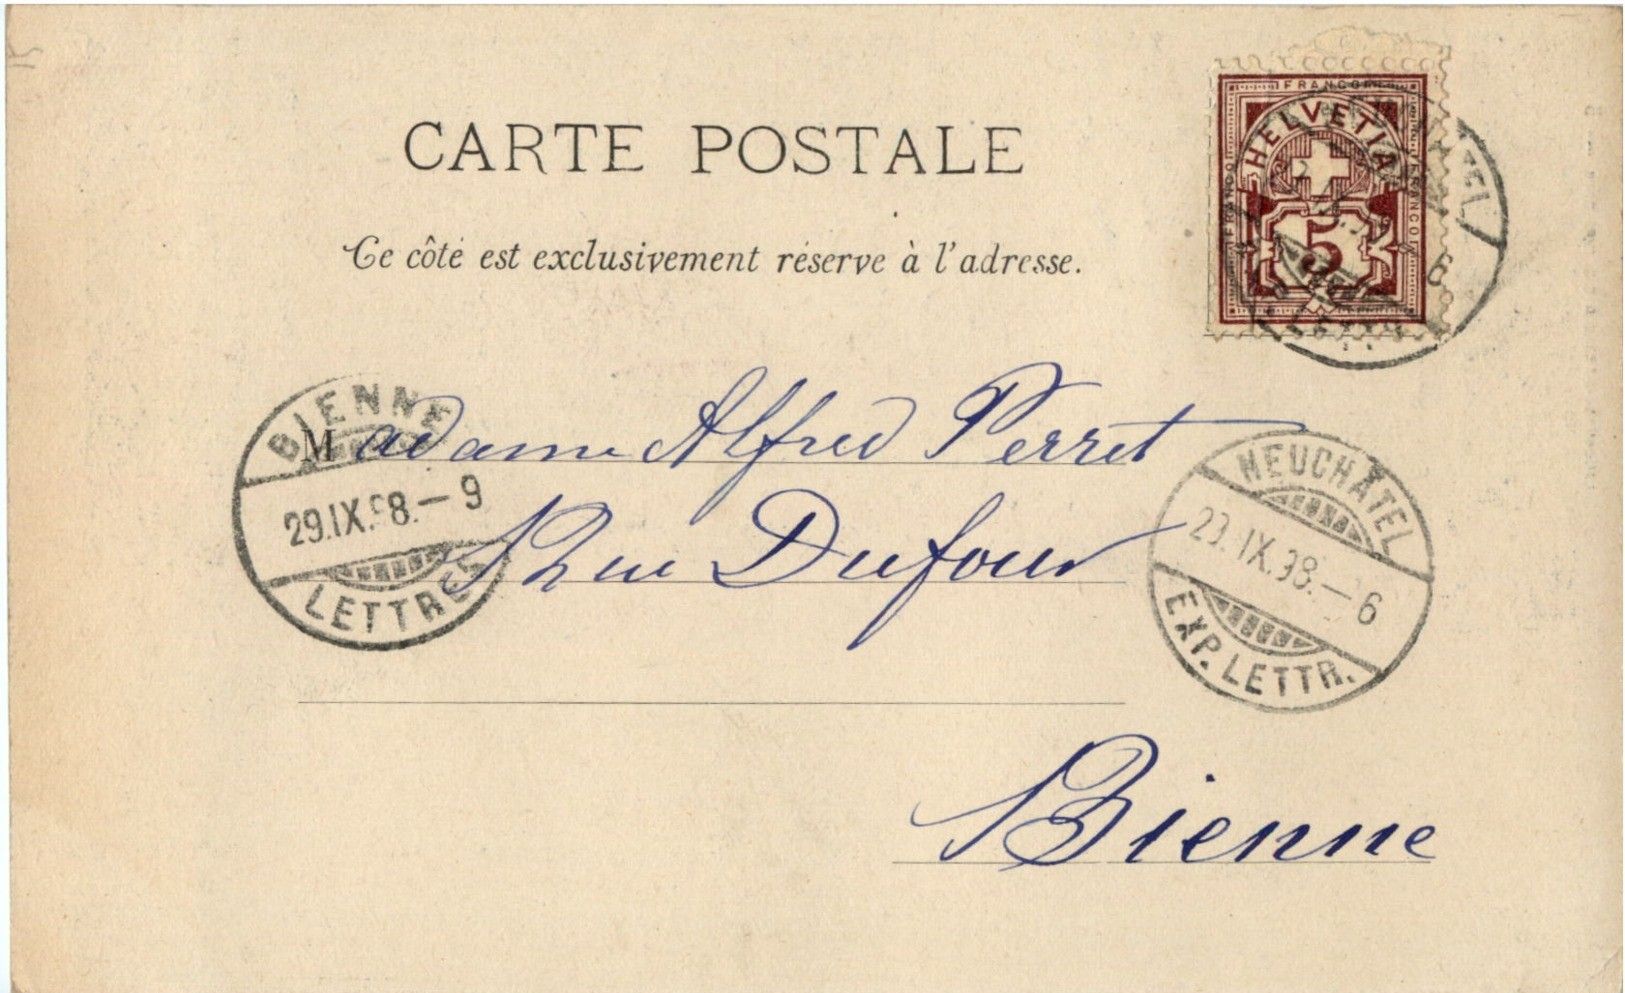 CARTE POSTALE
Ce côté est exclusivement réservé à l'adresse.
FRANCO
HELVETIA
FRANCO
FRANCO
5
Madame Alfred Perret
Rue Dufour
Bienne
BIENNE
29.IX.98.–9
LETTRES
NEUCHÂTEL
29.IX.98.–6
EXP. LETTR.